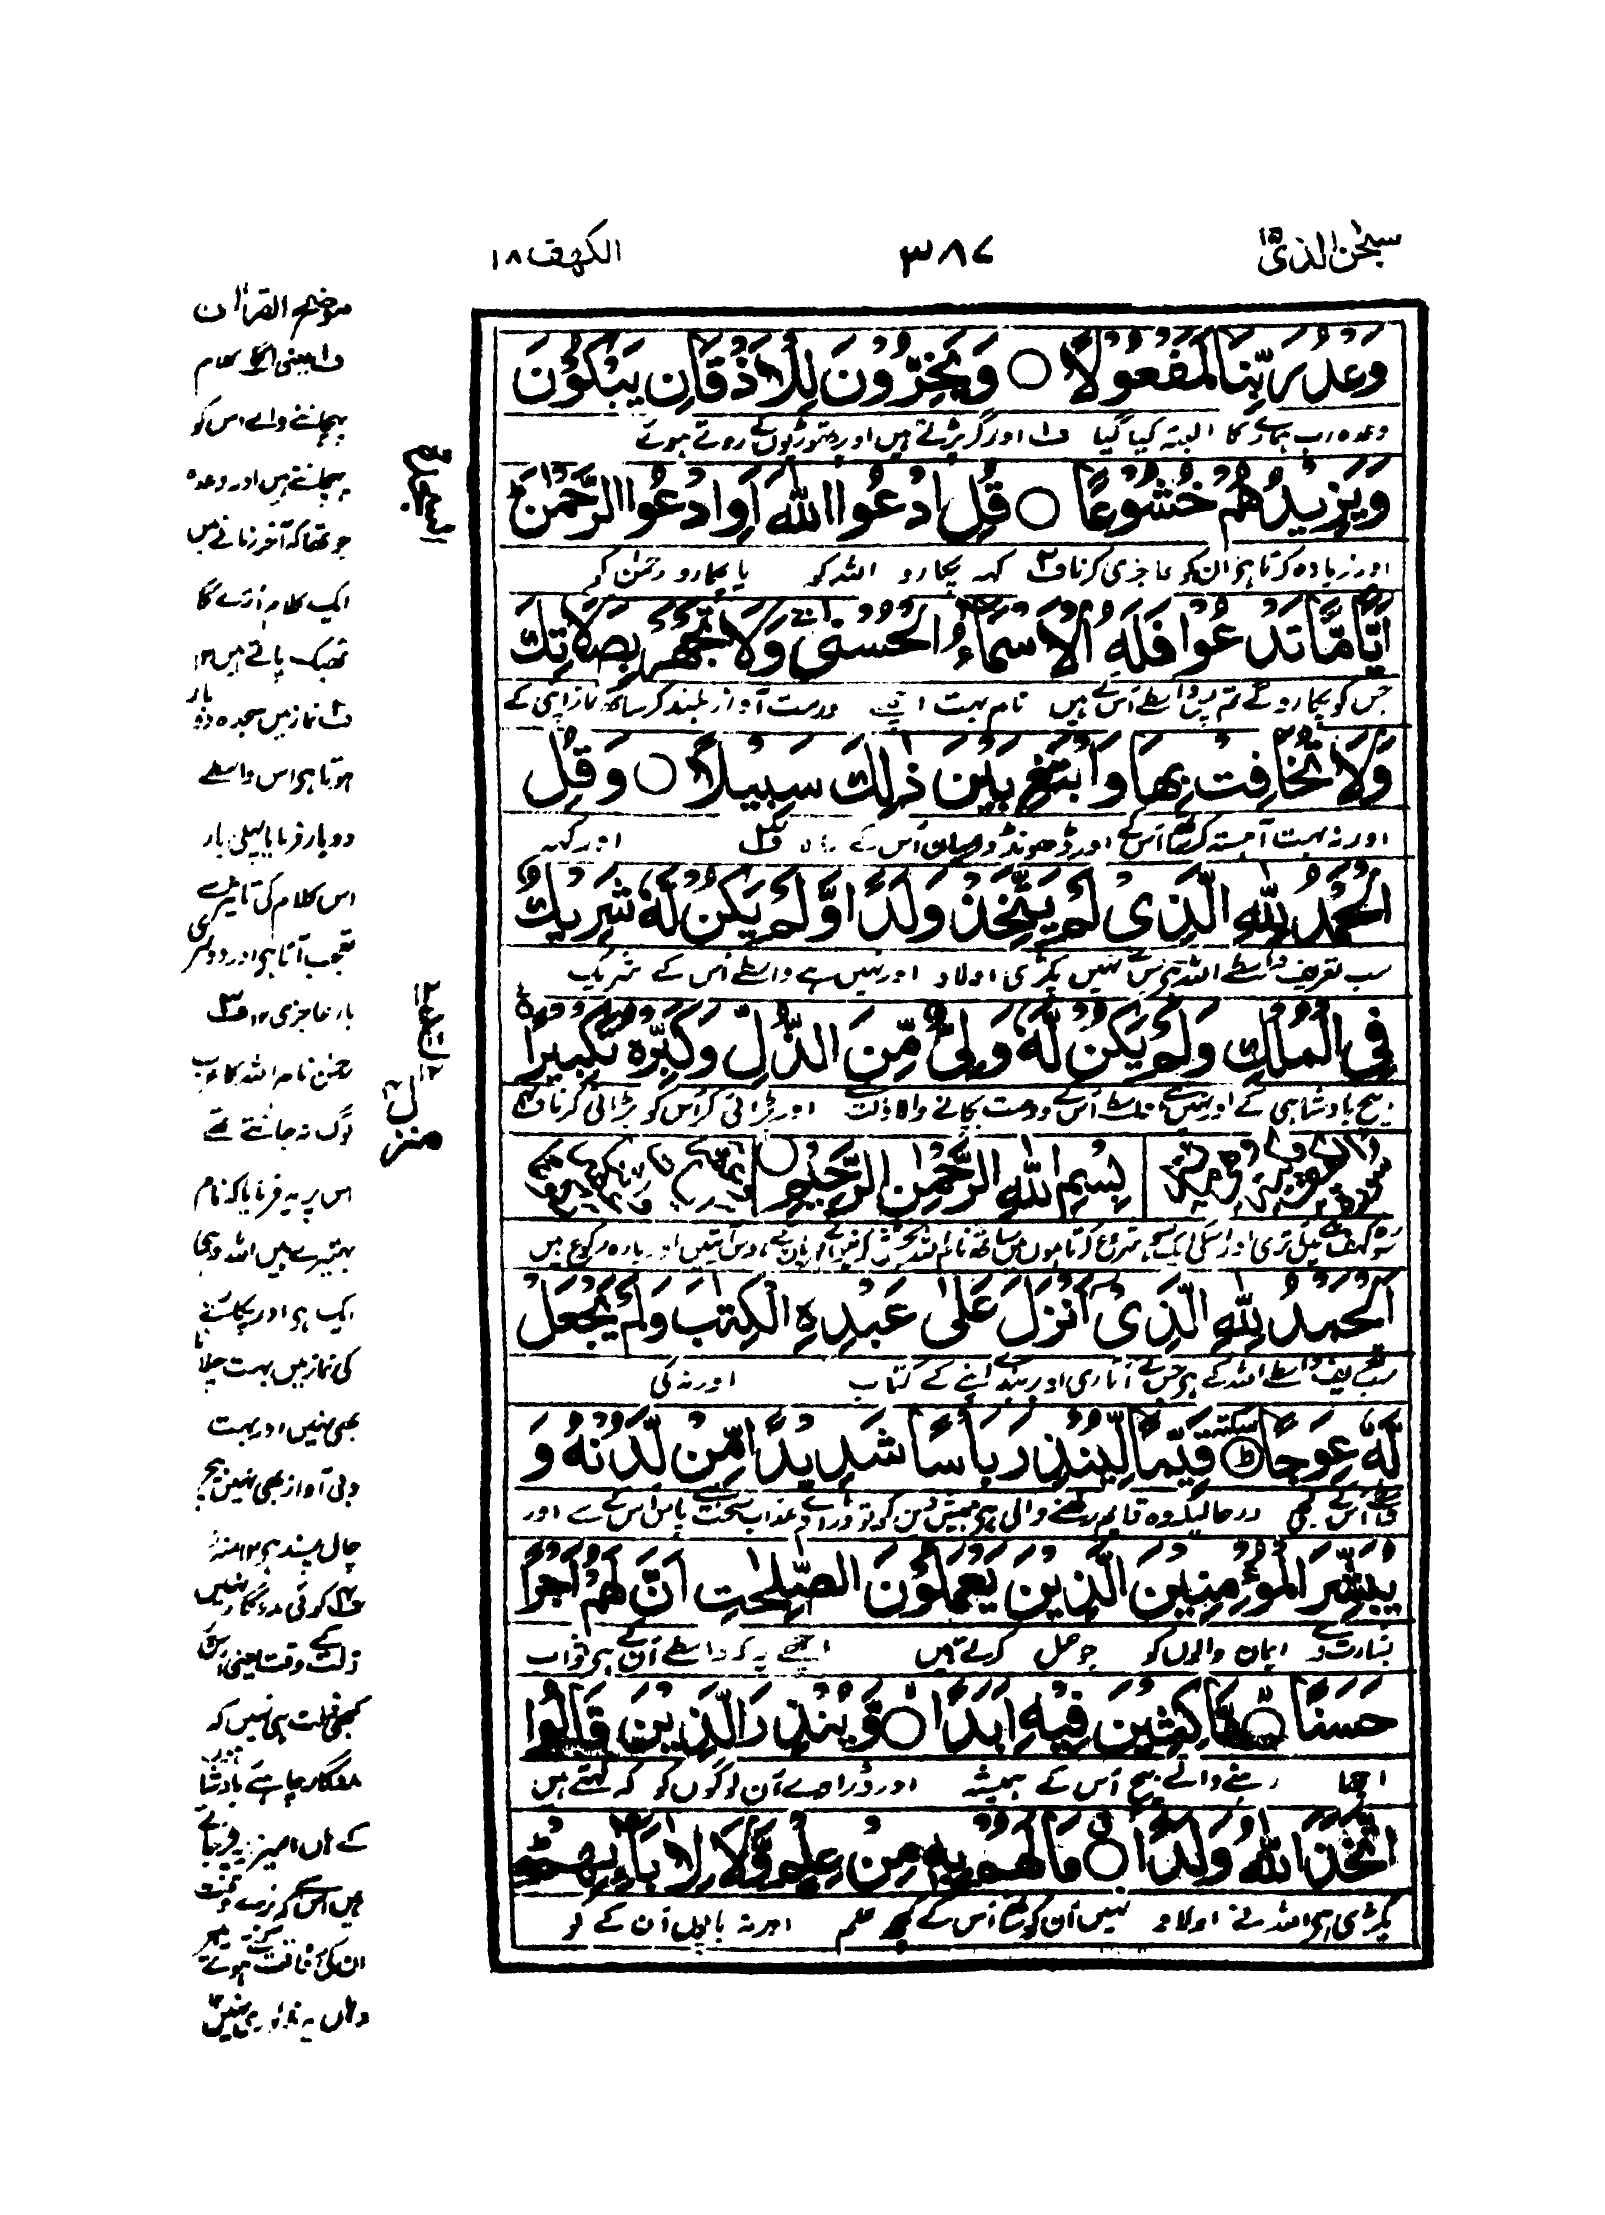 سبحٰن الذی ۱۵
۳۸۷
الکھف ۱۸
وَعْدُ رَبِّنَا لَمَفْعُولًا ○ وَيَخِرُّونَ لِلْأَذْقَانِ يَبْكُونَ
وعدہ رب ہمارے کا البتہ کیا گیا ف۱ اور گر پڑتے ہیں اوپر ٹھوڑیوں کے روتے ہوئے
وَيَزِيدُهُمْ خُشُوعًا ○ قُلِ ادْعُوا اللَّهَ أَوِ ادْعُوا الرَّحْمَٰنَ ؕ
اور زیادہ کرتا ہی ان کو عاجزی کرنا ف۲ کہہ پکارو اللہ کو یا پکارو رحمٰن کو
أَيًّا مَّا تَدْعُوا فَلَهُ الْأَسْمَاءُ الْحُسْنَىٰ ۚ وَلَا تَجْهَرْ بِصَلَاتِكَ
جس کو پکارو گے تم پس واسطے اُس کے ہیں نام بہت اچھے اور مت آواز بلند کر ساتھ نماز اپنی کے
وَلَا تُخَافِتْ بِهَا وَابْتَغِ بَيْنَ ذَٰلِكَ سَبِيلًا ○ وَقُلِ
اور نہ بہت آہستہ کر ساتھ اُس کے اور ڈھونڈ درمیان اُس کے راہ ف۳ اور کہہ
الْحَمْدُ لِلَّهِ الَّذِي لَمْ يَتَّخِذْ وَلَدًا وَّلَمْ يَكُنْ لَّهُ شَرِيكٌ
سب تعریف واسطے اللہ کے ہی جس نے نہیں پکڑی اولاد اور نہیں ہے واسطے اُس کے شریک
فِي الْمُلْكِ وَلَمْ يَكُنْ لَّهُ وَلِيٌّ مِّنَ الذُّلِّ وَكَبِّرْهُ تَكْبِيرًا
بیچ بادشاہی کے اور نہیں ہے واسطے اُس کے دوست بچانے والا ذلت سے اور بڑائی کر اُس کو بڑائی کرنا ف۴
بِسْمِ اللَّهِ الرَّحْمَٰنِ الرَّحِيمِ ○
الْحَمْدُ لِلَّهِ الَّذِي أَنْزَلَ عَلَىٰ عَبْدِهِ الْكِتَٰبَ وَلَمْ يَجْعَلْ
سب تعریف واسطے اللہ کے ہی جس نے اتاری اوپر بندے اپنے کے کتاب اور نہ کی
لَّهُ عِوَجًا ؕ قَيِّمًا لِّيُنْذِرَ بَأْسًا شَدِيدًا مِّنْ لَّدُنْهُ وَ
واسطے اُس کے کجی درحالیکہ وہ قائم رکھنے والی ہی تو ڈراوے عذاب سخت پاس اُس کے سے اور
يُبَشِّرَ الْمُؤْمِنِينَ الَّذِينَ يَعْمَلُونَ الصّٰلِحٰتِ أَنَّ لَهُمْ أَجْرًا
بشارت دے ایمان والوں کو جو عمل کرتے ہیں اچھے یہ کہ واسطے اُن کے ہی ثواب
حَسَنًا ○ مَّاكِثِينَ فِيهِ أَبَدًا ○ وَّيُنْذِرَ الَّذِينَ قَالُوا
اچھا رہنے والے بیچ اُس کے ہمیشہ اور ڈراوے اُن لوگوں کو کہ کہتے ہیں
اتَّخَذَ اللَّهُ وَلَدًا ○ مَا لَهُمْ بِهِ مِنْ عِلْمٍ وَّلَا لِآبَائِهِمْ ؕ
پکڑی ہی اللہ نے اولاد نہیں اُن کو ساتھ اُس کے کچھ علم اور نہ باپوں اُن کے کو
منزل ۴
موضح القرآن
ف۱ یعنی اگلے کلام
پہچاننے والے اس کو
پہچانتے ہیں اور وعدہ
جو تھا کہ آخر زمانے میں
ایک کلام اُترے گا
ٹھیک پاتے ہیں ۱۲
ف۲ نماز میں سجدہ دو بار
ہوتا ہی اس واسطے
دو بار فرمایا پہلی بار
اس کلام کی تاثیر سے
تعجب آتا ہی اور دوسری
بار عاجزی ۱۲ ف۳
رحمٰن نام اللہ کا عرب
لوگ نہ جانتے تھے
اس پر یہ فرمایا کہ نام
بہتیرے ہیں اللہ وہی
ایک ہی اور پکارنے
کی نماز میں بہت چلانا
بھی نہیں اور بہت
دبی آواز بھی نہیں بیچ
چال پسند ہی ۱۲ منہ
ف۴ کوئی مددگار نہیں
ذلت کے وقت یعنی اس
کبھی ذلت ہی نہیں کہ
مددگار چاہیے بادشاہ